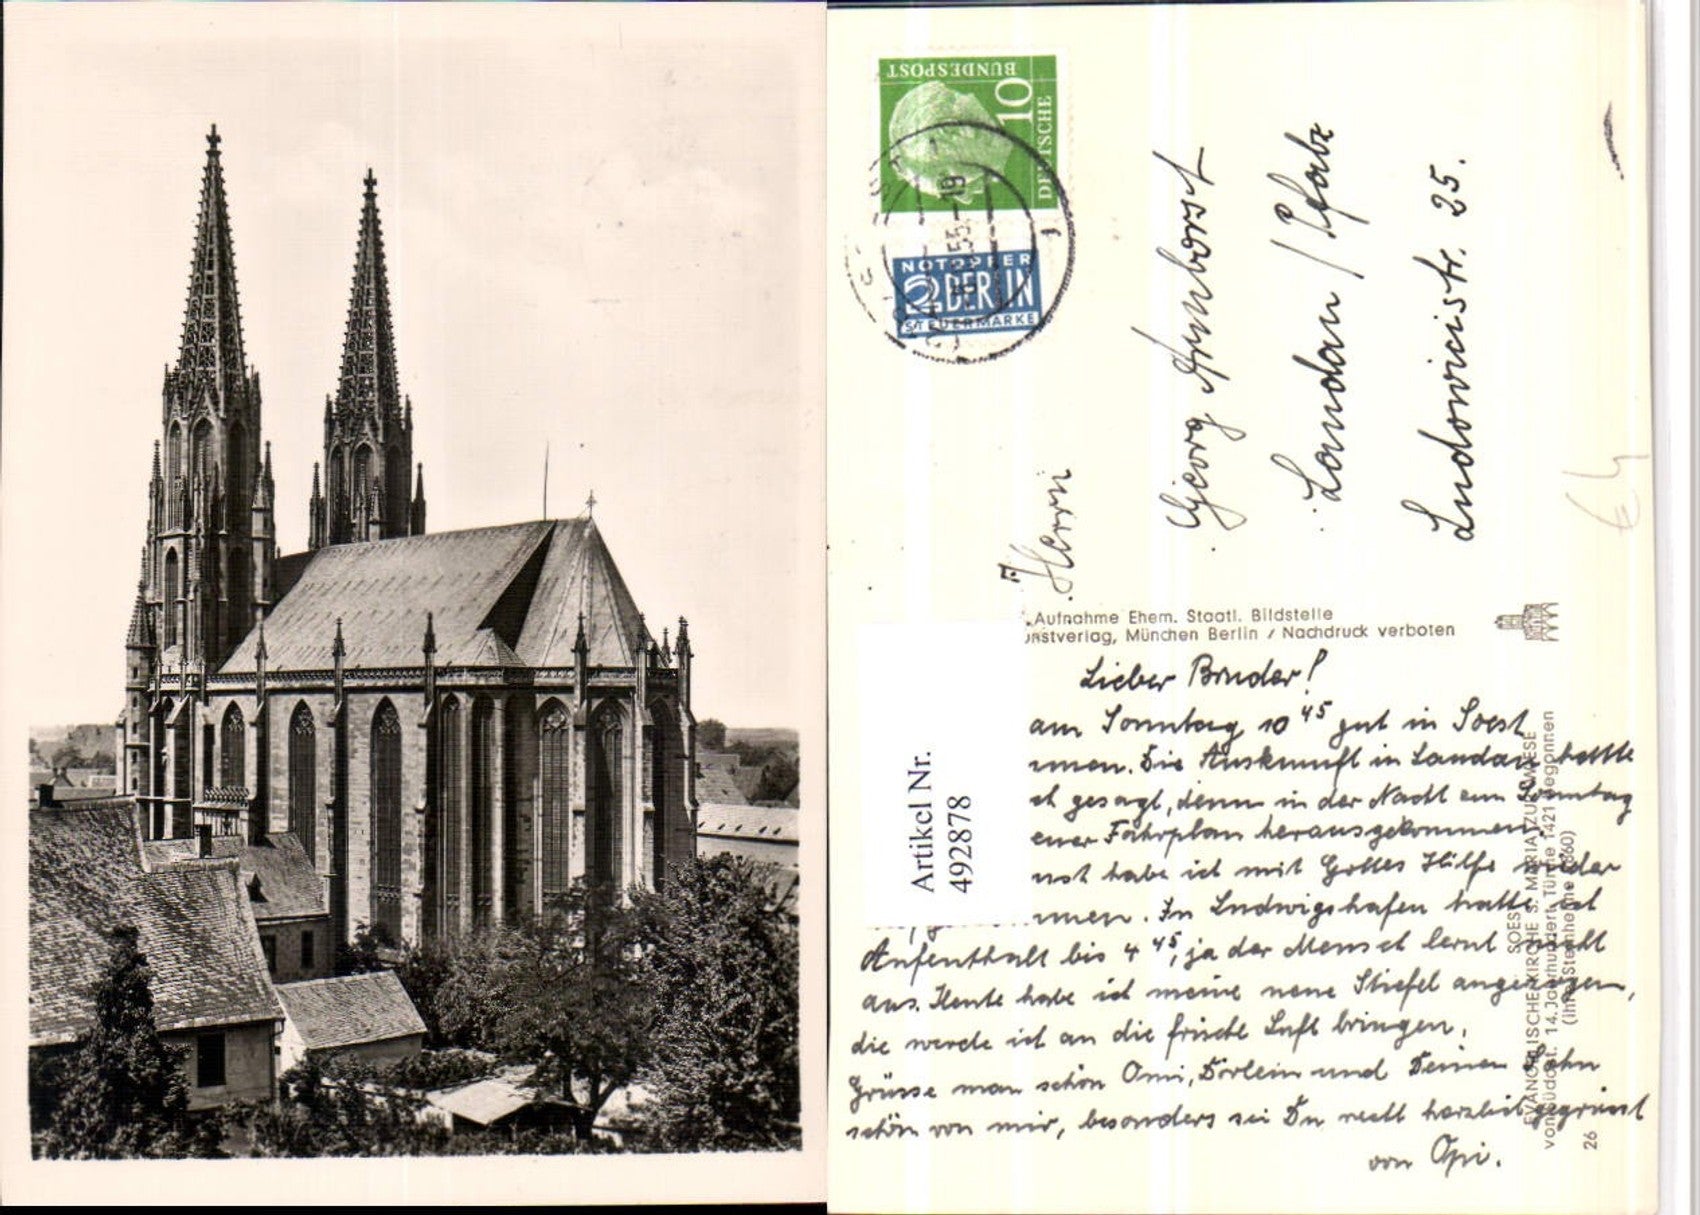 DEUTSCHE
BUNDESPOST
10
55.-19
NOTOPFER
2 BERLIN
STEUERMARKE
Herrn
Georg Armborst
Landau / Pfalz
Ludowicistr. 25.
Aufnahme Ehem. Staatl. Bildstelle
unstverlag, München Berlin / Nachdruck verboten
Artikel Nr.
492878
Lieber Bruder!
am Sonntag 10 45 gut in Soest
mmen. Die Auskunft in Landau hatte
ch gesagt, denn in der Nacht zum Sonntag
euer Fahrplan herausgekommen.
nst habe ich mit Gottes Hilfe wieder
mmen. In Ludwigshafen hatte ich
Aufenthalt bis 4 45, ja der Mensch lernt nicht
aus. Heute habe ich meine neue Stiefel angezogen,
die werde ich an die frische Luft bringen.
Grüsse man schön Omi, Dorlein und Deinen Sohn
schön von mir, besonders sei Du recht herzlich gegrüsst
von Opi.
SOEST
EVANGELISCHE KIRCHE S. MARIA ZUR WIESE
von Südost. 14. Jahrhundert. Türme 1421 begonnen
26